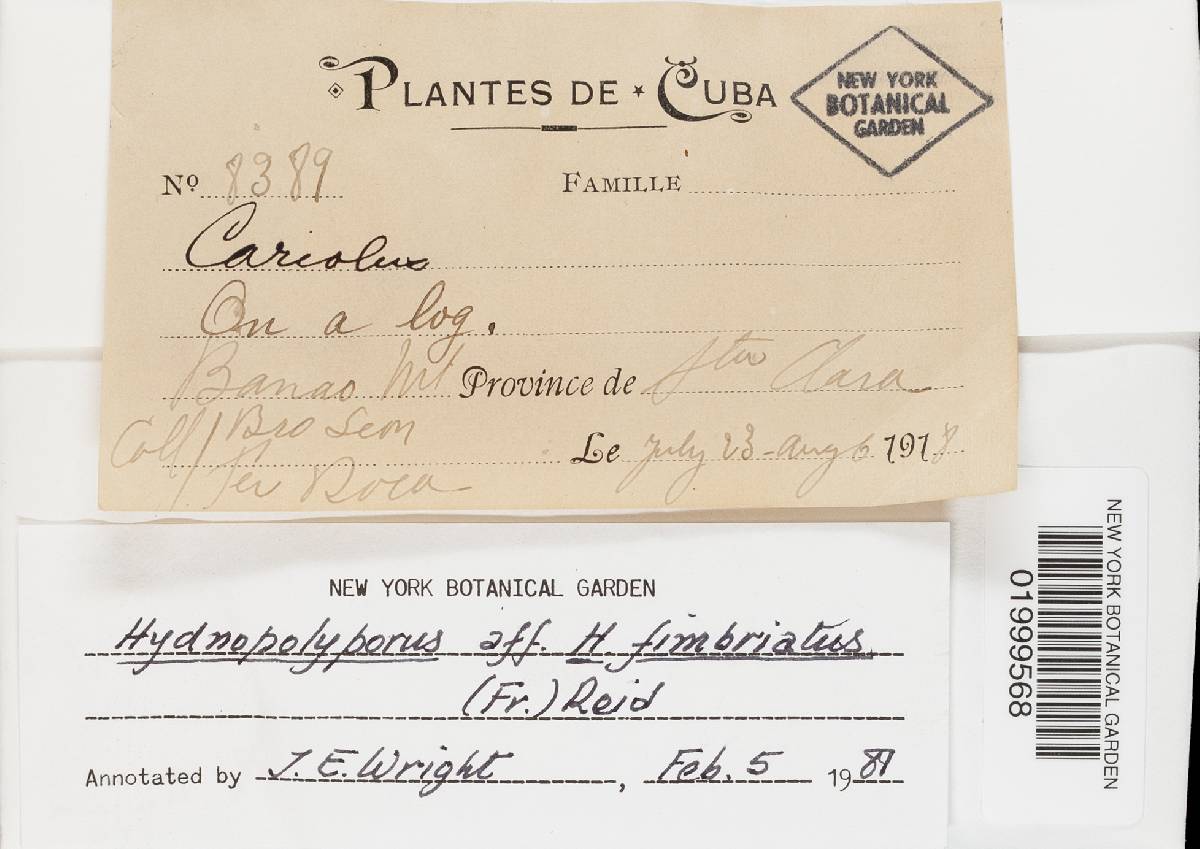 PLANTES DE * CUBA
NEW YORK
BOTANICAL
GARDEN
Nº 8389 FAMILLE
Coriolus
On a log.
Banao Mt Province de Sta Clara
Coll / Bro Leon
Le July 23-Aug 6 1918
Per Roca
NEW YORK BOTANICAL GARDEN
Hydnopolyporus aff. H. fimbriatus
(Fr.) Reid
Annotated by J. E. Wright, Feb. 5 1981
NEW YORK BOTANICAL GARDEN
01999568